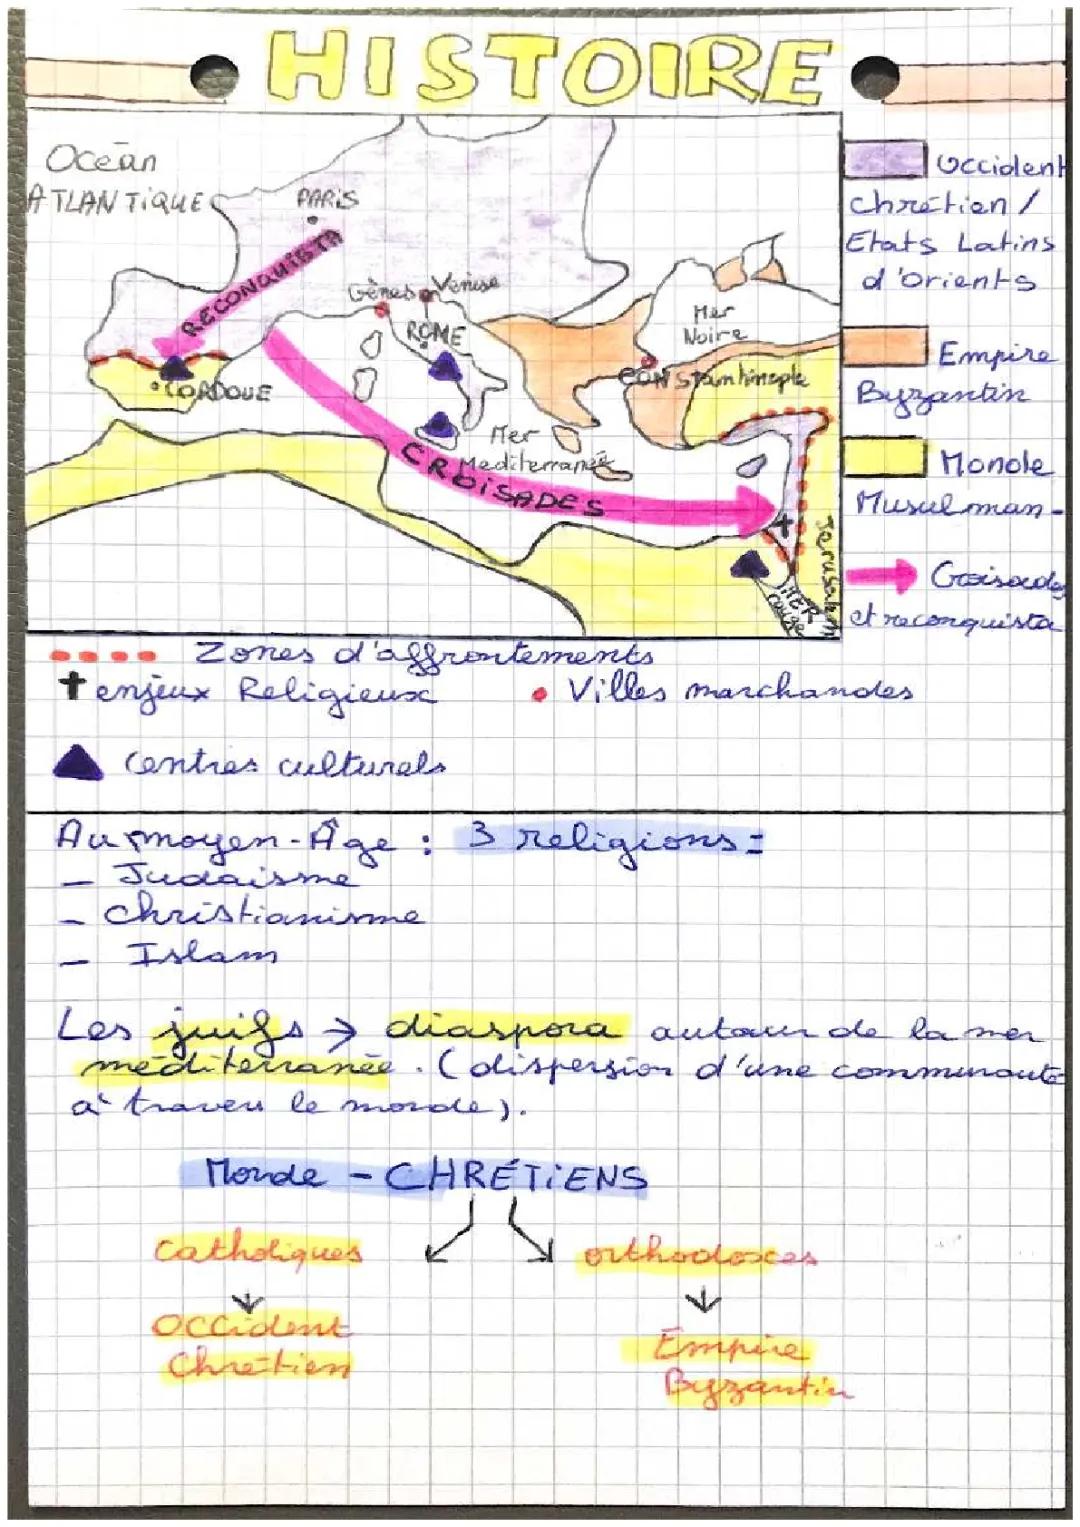 HISTOIRE
Océan
ATLANTIQUE
PARIS
RECONQUISTA
Gênes
Venise
ROME
CORDOUE
Mer
Noire
CONStantinople
Mer
Mediterranée
CROISADES
Jerusalem
MER
rouge
Occident
chrétien /
Etats Latins
d'Orients
Empire
Byzantin
Monde
Musulman-
Croisades
et reconquista
Zones d'affrontements
enjeux Religieux
Villes marchandes
Centres culturels
Au moyen-Âge : 3 religions =
- Judaisme
- christianisme
- Islam
Les juifs → diaspora autour de la mer
méditerranée. (dispersion d'une communauté
à travers le monde).
Monde - CHRÉTIENS
Catholiques
orthodoxes
Occident
Chrétien
Empire
Byzantin